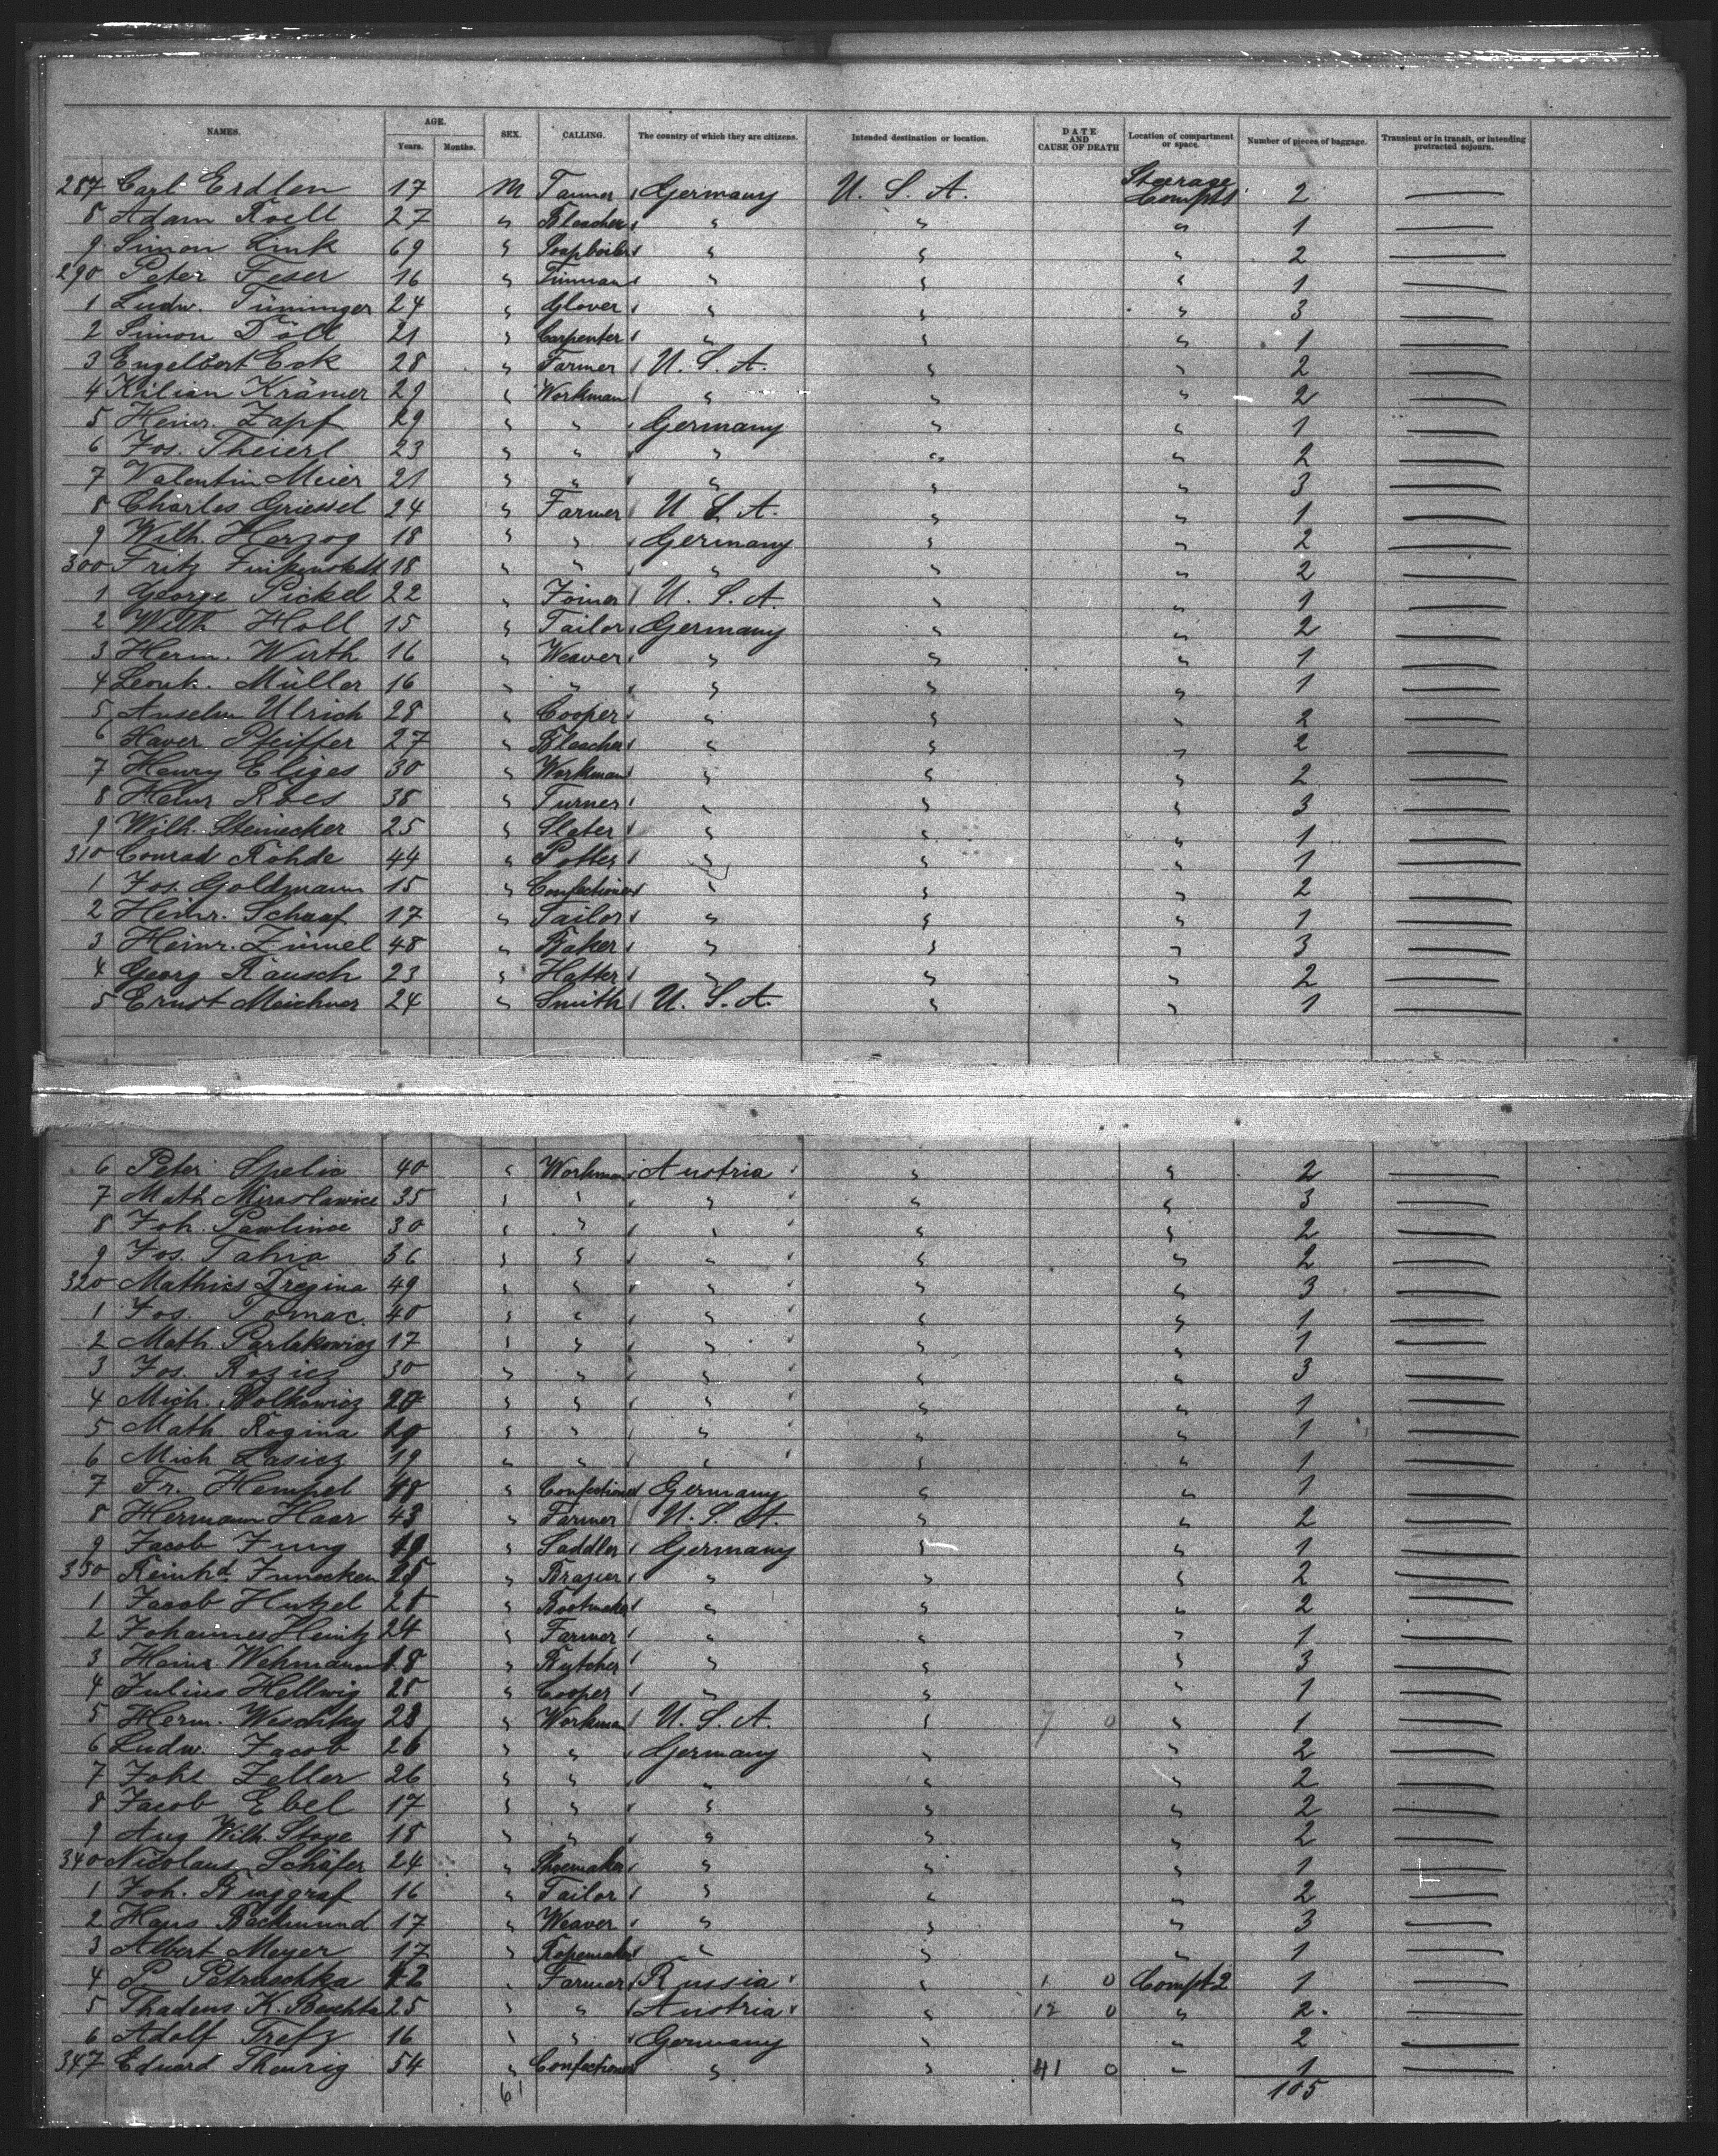 NAMES. AGE. Years. Months. SEX. CALLING. The country of which they are citizens. Intended destination or location. DATE AND CAUSE OF DEATH Location of compartment or space. Number of pieces of baggage. Transient or in transit, or intending protracted sojourn.
287 Carl Erdlen 17 M Tanner Germany U. S. A. Steerage Compt 1 2 —
8 Adam Roell 27 " Bleacher " " " 1 —
9 Simon Link 69 " Soapboiler " " " 2 —
290 Peter Feser 16 " Tinman " " " 1 —
1 Ludw. Tüninger 24 " Glover " " " 3 —
2 Simon Döll 21 " Carpenter " " " 1 —
3 Engelbert Eck 28 " Farmer U. S. A. " " 2 —
4 Kilian Krämer 29 " Workman " " " 2 —
5 Heinr. Zapf 29 " " Germany " " 1 —
6 Jos. Theierl 23 " " " " " 2 —
7 Valentin Meier 21 " " " " " 3 —
8 Charles Griessel 24 " Farmer U. S. A. " " 1 —
9 Wilh. Herzog 18 " " Germany " " 2 —
300 Fritz 18 " " " " " 2 —
1 George Pickel 22 " Joiner U. S. A. " " 1 —
2 Wilh Holl 15 " Tailor Germany " " 2 —
3 Herm. Wirth 16 " Weaver " " " 1 —
4 Leonh. Müller 16 " " " " " 1 —
5 Anselm Ulrich 28 " Cooper " " " 2 —
6 Xaver Pfeiffer 27 " Bleacher " " " 2 —
7 Henry Eliges 30 " Workman " " " 2 —
8 Heinr Roes 38 " Turner " " " 3 —
9 Wilh. Steinecker 25 " Slater " " " 1 —
310 Conrad Rohde 44 " Potter " " " 1 —
1 Jos. Goldmann 15 " Confectioner " " " 2 —
2 Heinr. Schaaf 17 " Tailor " " " 1 —
3 Heinr. Zimmel 48 " Baker " " " 3 —
4 Georg Rausch 23 " Hatter " " " 2 —
5 Ernst Meichner 24 " Smith U. S. A. " " 1 —
6 Peter Spelic 40 " Workman Austria " " 2 —
7 Math Miroslawice 35 " " " " " 3 —
8 Joh. Pawlince 30 " " " " " 2 —
9 Jos. Tahia 36 " " " " " 2 —
320 Mathies Dregina 49 " " " " " 3 —
1 Jos. Tomac. 40 " " " " " 1 —
2 Math. Parlakowicz 17 " " " " " 1 —
3 Jos. Rozicz 30 " " " " " 3 —
4 Mich. Bolkowicz 27 " " " " " 1 —
5 Math Rogina 20 " " " " " 1 —
6 Mich Lasicz 19 " " " " " 1 —
7 Fr. Hempel 18 " Confectioner Germany " " 1 —
8 Hermann Haar 43 " Farmer U. S. A. " " 2 —
9 Jacob Jung 19 " Saddler Germany " " 1 —
330 Reinhd. Junecken 25 " Brazier " " " 2 —
1 Jacob Hutzel 28 " Bootmaker " " " 2 —
2 Johannes Heintz 24 " Farmer " " " 1 —
3 Heinr Wehmann 18 " Butcher " " " 3 —
4 Julius Hellwig 25 " Cooper " " " 1 —
5 Herm. Weschky 23 " Workman U. S. A. " 7 0 " 1 —
6 Ludw. Jacob 26 " " Germany " " 2 —
7 Johs Zeller 26 " " " " " 2 —
8 Jacob Ebel 17 " " " " " 2 —
9 Aug Wilh. Stoye 18 " " " " " 2 —
340 Nicolaus Schäfer 24 " Shoemaker " " " 1 —
1 Joh. Burggraf 16 " Tailor " " " 2 —
2 Hans Backmund 17 " Weaver " " " 3 —
3 Albert Meyer 17 " Ropemaker " " " 1 —
4 P. Petruschka 42 " Farmer Russia " 1 0 Compt 2 1 —
5 Thadeus K. Bechta 25 " " Austria " 12 0 " 2. —
6 Adolf Trefz 16 " " Germany " " 2 —
347 Eduard Theurig 54 " Confectioner " " 41 0 " 1 —
61 105